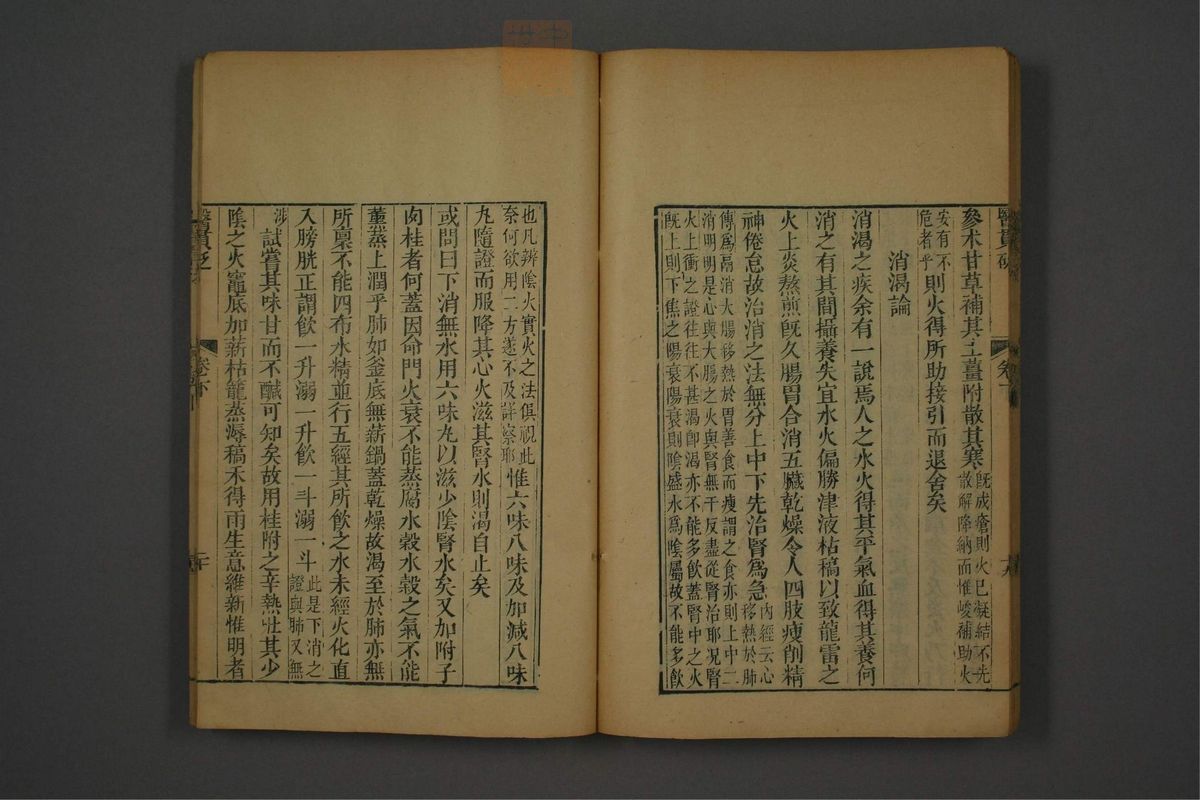 醫貫砭
卷下
十九
參朮甘草補其土薑附散其寒既成瘡則火已凝結不先
散解降納而惟峻補助火
安有不
危者乎則火得所助接引而退舍矣
消渴論
消渴之疾余有一說焉人之水火得其平氣血得其養何
消之有其間攝養失宜水火偏勝津液枯稿以致龍雷之
火上炎熬煎既久腸胃合消五臟乾燥令人四肢瘦削精
神倦怠故治消之法無分上中下先治腎為急內經云心
移熱於肺
傳為鬲消大腸移熱於胃善食而瘦謂之食亦則上中二
消明明是心與大腸之火與腎無干反盡從腎治耶况腎
火上衝之證往往不甚渴卽渴亦不能多飲蓋腎中之火
既上則下焦之陽衰陽衰則陰盛水爲陰屬故不能多飲
也凡辨陰火實火之法俱視此
奈何欲用二方遂不及詳察耶惟六味八味及加減八味
丸隨證而服降其心火滋其腎水則渴自止矣
或問曰下消無水用六味丸以滋少陰腎水矣又加附子
肉桂者何蓋因命門火衰不能蒸腐水穀水穀之氣不能
薰蒸上潤乎肺如釜底無薪鍋蓋乾燥故渴至於肺亦無
所禀不能四布水精並行五經其所飲之水未經火化直
入膀胱正謂飲一升溺一升飲一斗溺一斗此是下消之
證與肺又無
涉
試嘗其味甘而不鹹可知矣故用桂附之辛熱壯其少
陰之火竈底加薪枯籠蒸溽稿禾得雨生意維新惟明者
醫貫砭
卷下
二十